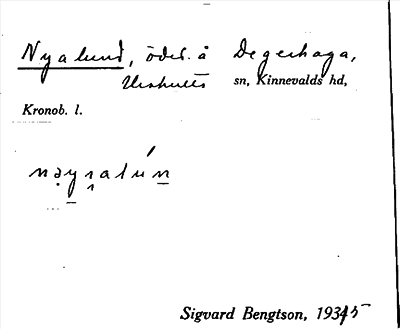 Nyalund, öded. å Degerhaga,
Urshults sn, Kinnevalds hd,
Kronob. l.
Sigvard Bengtson, 1935